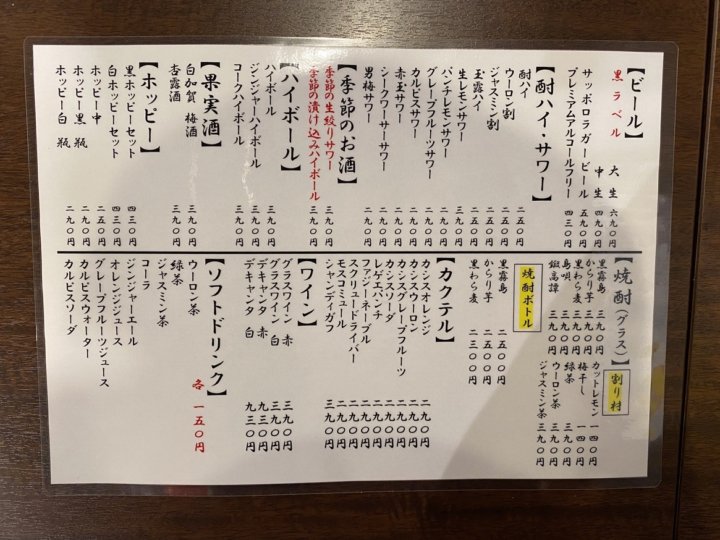 【ビール】
黒ラベル 大生 六九〇円
中生 四九〇円
サッポロラガービール 五九〇円
プレミアムアルコールフリー 四三〇円
【酎ハイ・サワー】
酎ハイ 二五〇円
ウーロン割 二五〇円
ジャスミン割 二五〇円
玉露ハイ 二五〇円
生レモンサワー 三九〇円
パンチレモンサワー 二九〇円
グレープフルーツサワー 二九〇円
カルピスサワー 二九〇円
赤玉サワー 二九〇円
シークワーサーサワー 二九〇円
男梅サワー 二九〇円
【季節のお酒】
季節の生絞りサワー 三九〇円
季節の漬け込みハイボール 三九〇円
【ハイボール】
ハイボール 三九〇円
ジンジャーハイボール 三九〇円
コークハイボール 三九〇円
【果実酒】
白加賀 梅酒 三九〇円
杏露酒 三九〇円
【ホッピー】
黒ホッピーセット 四三〇円
白ホッピーセット 四三〇円
ホッピー中 二九〇円
ホッピー黒 瓶 二九〇円
ホッピー白 瓶 二九〇円
【焼酎(グラス)】
黒霧島 三九〇円
からり芋 三九〇円
黒わら麦 三九〇円
島唄 三九〇円
鍛高譚 三九〇円
割り材
カットレモン 一四〇円
梅干し 一四〇円
緑茶 三九〇円
ウーロン茶 三九〇円
ジャスミン茶 三九〇円
焼酎ボトル
黒霧島 二五〇〇円
からり芋 二五〇〇円
黒わら麦 二三〇〇円
【カクテル】
カシスオレンジ 二九〇円
カシスウーロン 二九〇円
カシスグレープフルーツ 二九〇円
カシスソーダ 二九〇円
レゲエパンチ 二九〇円
ファジーネーブル 二九〇円
スクリュードライバー 二九〇円
モスコミュール 二九〇円
シャンディガフ 二九〇円
【ワイン】
グラスワイン 赤 三九〇円
グラスワイン 白 三九〇円
デキャンタ 赤 九三〇円
デキャンタ 白 九三〇円
【ソフトドリンク】 各 一五〇円
ウーロン茶
緑茶
ジャスミン茶
コーラ
ジンジャーエール
オレンジジュース
グレープフルーツジュース
カルピスウォーター
カルピスソーダ